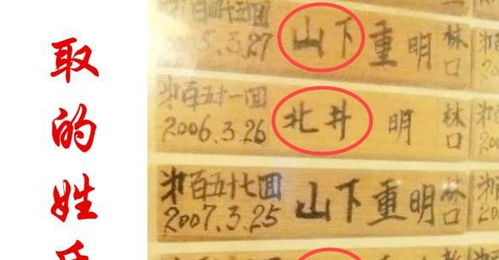 取的姓氏
第百四十五回
2005.3.27
山下重明
林口
第百五十一回
2006.3.26
北井明
林口
第百五十七回
2007.3.25
山下重明
林口